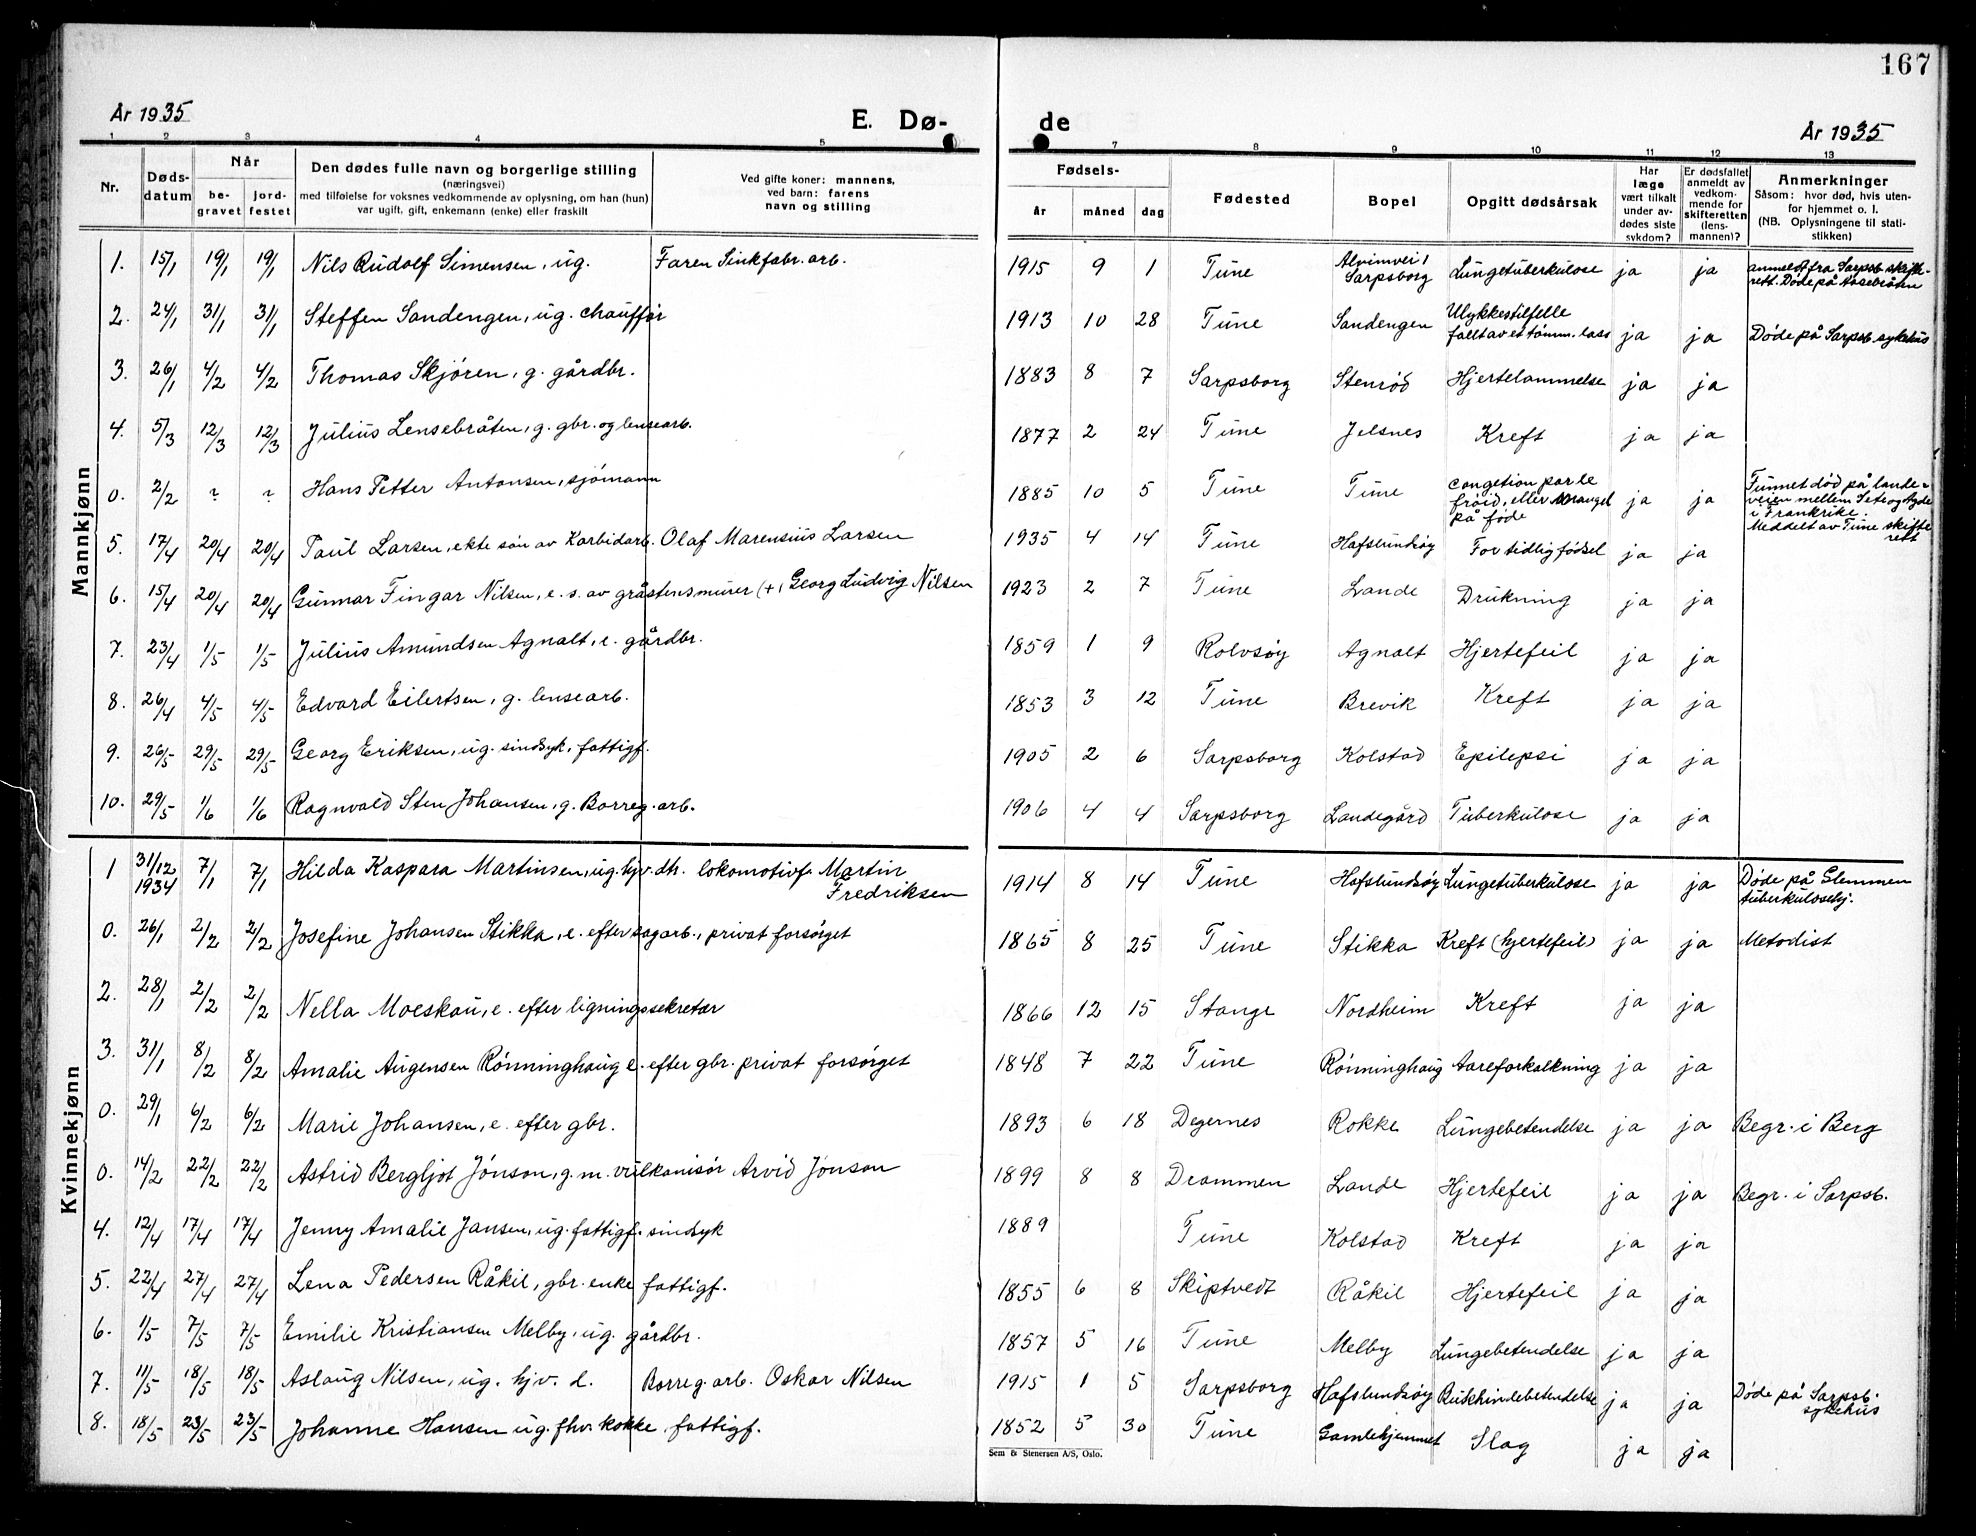 167
År 1935
E. Dø-
de
År 1935
1 2 3 4 5 7 8 9 10 11 12 13
Nr.
Døds-
datum
Når
be-
gravet
jord-
festet
Den dødes fulle navn og borgerlige stilling
(næringsvei)
med tilføielse for voksnes vedkommende av oplysning, om han (hun)
var ugift, gift, enkemann (enke) eller fraskilt
Ved gifte koner: mannens,
ved barn: farens
navn og stilling
Fødsels-
år
måned
dag
Fødested
Bopel
Opgitt dødsårsak
Har
læge
vært tilkalt
under av-
dødes siste
sykdom?
Er dødsfallet
anmeldt av
vedkom-
mende for
skifteretten
(lens-
mannen)?
Anmerkninger
Såsom: hvor død, hvis uten-
for hjemmet o. l.
(NB. Oplysningene til stati-
stikken)
Mannkjønn
1. 15/1 19/1 19/1 Nils Rudolf Simensen, ug. Faren Sinkfabr. arb. 1915 9 1 Tune Alvimvei 1 Sarpsborg Lungetuberkulose ja ja anmeldt fra Sarpsb. skifte-
rett. Døde på Aasebråten
2. 24/1 31/1 31/1 Steffen Sandengen, ug. chauffør 1913 10 28 Tune Sandengen Ulykkestilfelle
falt av et tømm. lass ja ja Døde på Sarpsb. sykehus
3. 26/1 4/2 4/2 Thomas Skjøren, g. gårdbr. 1883 8 7 Sarpsborg Stenrød Hjertelammelse ja ja
4. 5/3 12/3 12/3 Julius Lensebråten, g. gbr. og lensearb. 1877 2 24 Tune Jelsnes Kreft ja ja
0. 2/2 ? ? Hans Petter Antonsen, sjømann 1885 10 5 Tune Tune congetion par le
froid, eller mangel
på føde ja ja Funnet død på lande-
veien mellem Sete og Agde
i Frankrike.
Meddelt av Tune skifte
rett
5. 17/4 20/4 20/4 Paul Larsen, ekte søn av Karbidarb. Olaf Marensius Larsen 1935 4 14 Tune Hafslundsøy For tidlig fødsel ja ja
6. 15/4 20/4 20/4 Gunnar Fingar Nilsen, e. s. av gråstensmurer (+, Georg Ludvig Nilsen 1923 2 7 Tune Lande Drukning ja ja
7. 23/4 1/5 1/5 Julius Amundsen Agnalt, e. gårdbr. 1859 1 9 Rolvsøy Agnalt Hjertefeil ja ja
8. 26/4 4/5 4/5 Edvard Eilertsen, g. lensearb. 1853 3 12 Tune Brevik Kreft ja ja
9. 26/5 29/5 29/5 Georg Eriksen, ug. sindsyk, fattigf. 1905 2 6 Sarpsborg Kolstad Epilepsi ja ja
10. 29/5 1/6 1/6 Ragnvald Sten Johansen, g. Borreg. arb. 1906 4 4 Sarpsborg Landegård Tuberkulose ja ja
Kvinnekjønn
1 31/12 1934 7/1 7/1 Hilda Kaspara Martinsen, ug. hjv. dtr. lokomotivf. Martin
Fredriksen 1914 8 14 Tune Hafslundsøy Lungetuberkulose ja ja Døde på Glemmen
tuberkulosehj.
0. 26/1 2/2 2/2 Josefine Johansen Stikka, e. efter sagarb., privat forsørget 1865 8 25 Tune Stikka Kreft (hjertefeil) ja ja Metodist
2. 28/1 2/2 2/2 Nella Moeskau, e. efter ligningssekretær 1866 12 15 Stange Nordheim Kreft ja ja
3. 31/1 8/2 8/2 Amalie Augensen Rønninghaug e. efter gbr. privat forsørget 1848 7 22 Tune Rønninghaug Aareforkalkning ja ja
0. 29/1 6/2 6/2 Marie Johansen, e. efter gbr. 1893 6 18 Degernes Rokke Lungebetendelse ja ja Begr. i Berg
0. 14/2 22/2 22/2 Astrid Bergljot Jónson, g. m. vulkanisør Arvid Jónson 1899 8 8 Drammen Lande Hjertefeil ja ja Begr. i Sarpsb.
4. 12/4 17/4 17/4 Jenny Amalie Jansen, ug. fattigf. sindsyk 1889 Tune Kolstad Kreft ja ja
5. 22/4 27/4 27/4 Lena Pedersen Råkil, gbr. enke fattigf. 1855 6 8 Skiptvedt Råkil Hjertefeil ja ja
6. 1/5 7/5 7/5 Emilie Kristiansen Melby, ug. gårdbr. 1857 5 16 Tune Melby Lungebetendelse ja ja
7. 11/5 18/5 18/5 Aslaug Nilsen, ug. hjv. d. Borreg. arb. Oskar Nilsen 1915 1 5 Sarpsborg Hafslundsøy Bukhindebetendelse ja ja Døde på Sarpsb.
sykehus
8. 18/5 23/5 23/5 Johanne Hansen ug. fhv. kokke, fattigf. 1852 5 30 Tune Gamlehjemmet Slag ja ja
Sem & Stenersen A/S, Oslo.